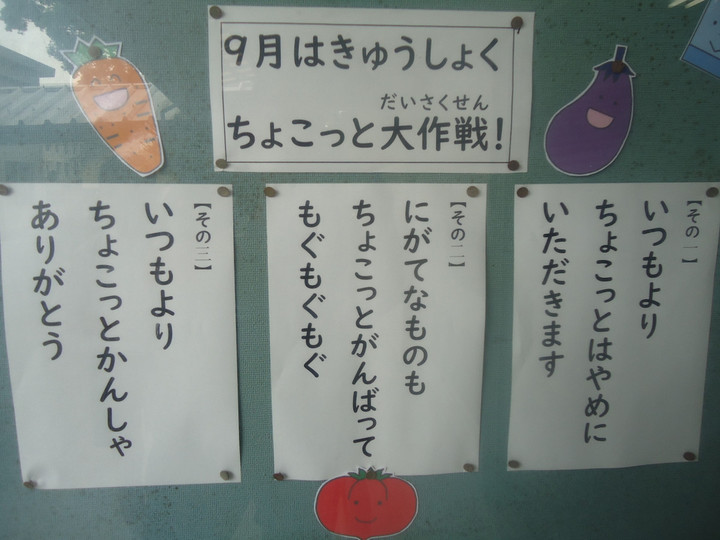 9月はきゅうしょく
だいさくせん
ちょこっと大作戦!
【その一】
いつもより
ちょこっとはやめに
いただきます
【その二】
にがてなものも
ちょこっとがんばって
もぐもぐもぐ
【その三】
いつもより
ちょこっとかんしゃ
ありがとう